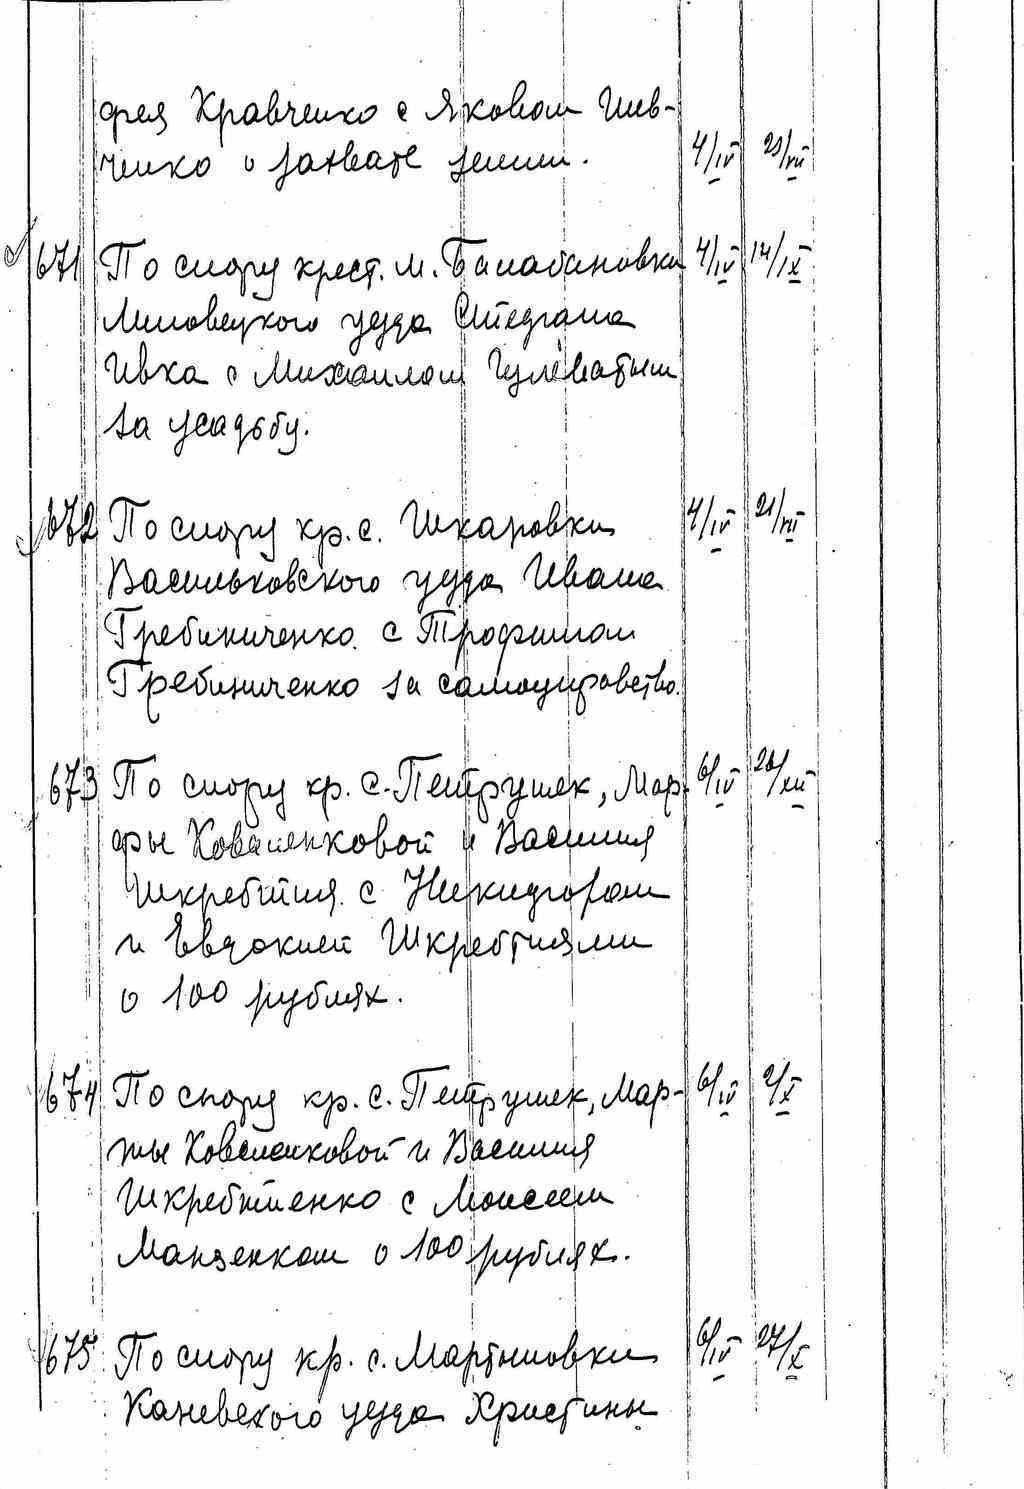 фея Кравченко с Яковом Шев-
ченко о захвате земли. 4/IV 21/VII
671 По спору крест. м. Балабановки 4/IV 14/IX
Липовецкого уезда Степана
Ивка с Михаилом Гулеватым
за усадьбу.
672 По спору кр. с. Шкаровки 4/IV 21/VII
Васильковского уезда Ивана
Гребиниченко с Трофимом
Гребиниченко за самоуправство.
673 По спору кр. с. Петрушек, Мар- 6/IV 20/XII
фы Коваленковой и Василия
Шкребтия с Никифором
и Евдокией Шкребтиями
о 100 рублях.
674 По спору кр. с. Петрушек, Мар- 6/IV 2/X
фы Коваленковой и Василия
Шкребтиенко с Моисеем
Манзенком о 100 рублях.
675 По спору кр. с. Мартыновки 6/IV 27/X
Каневского уезда Христины